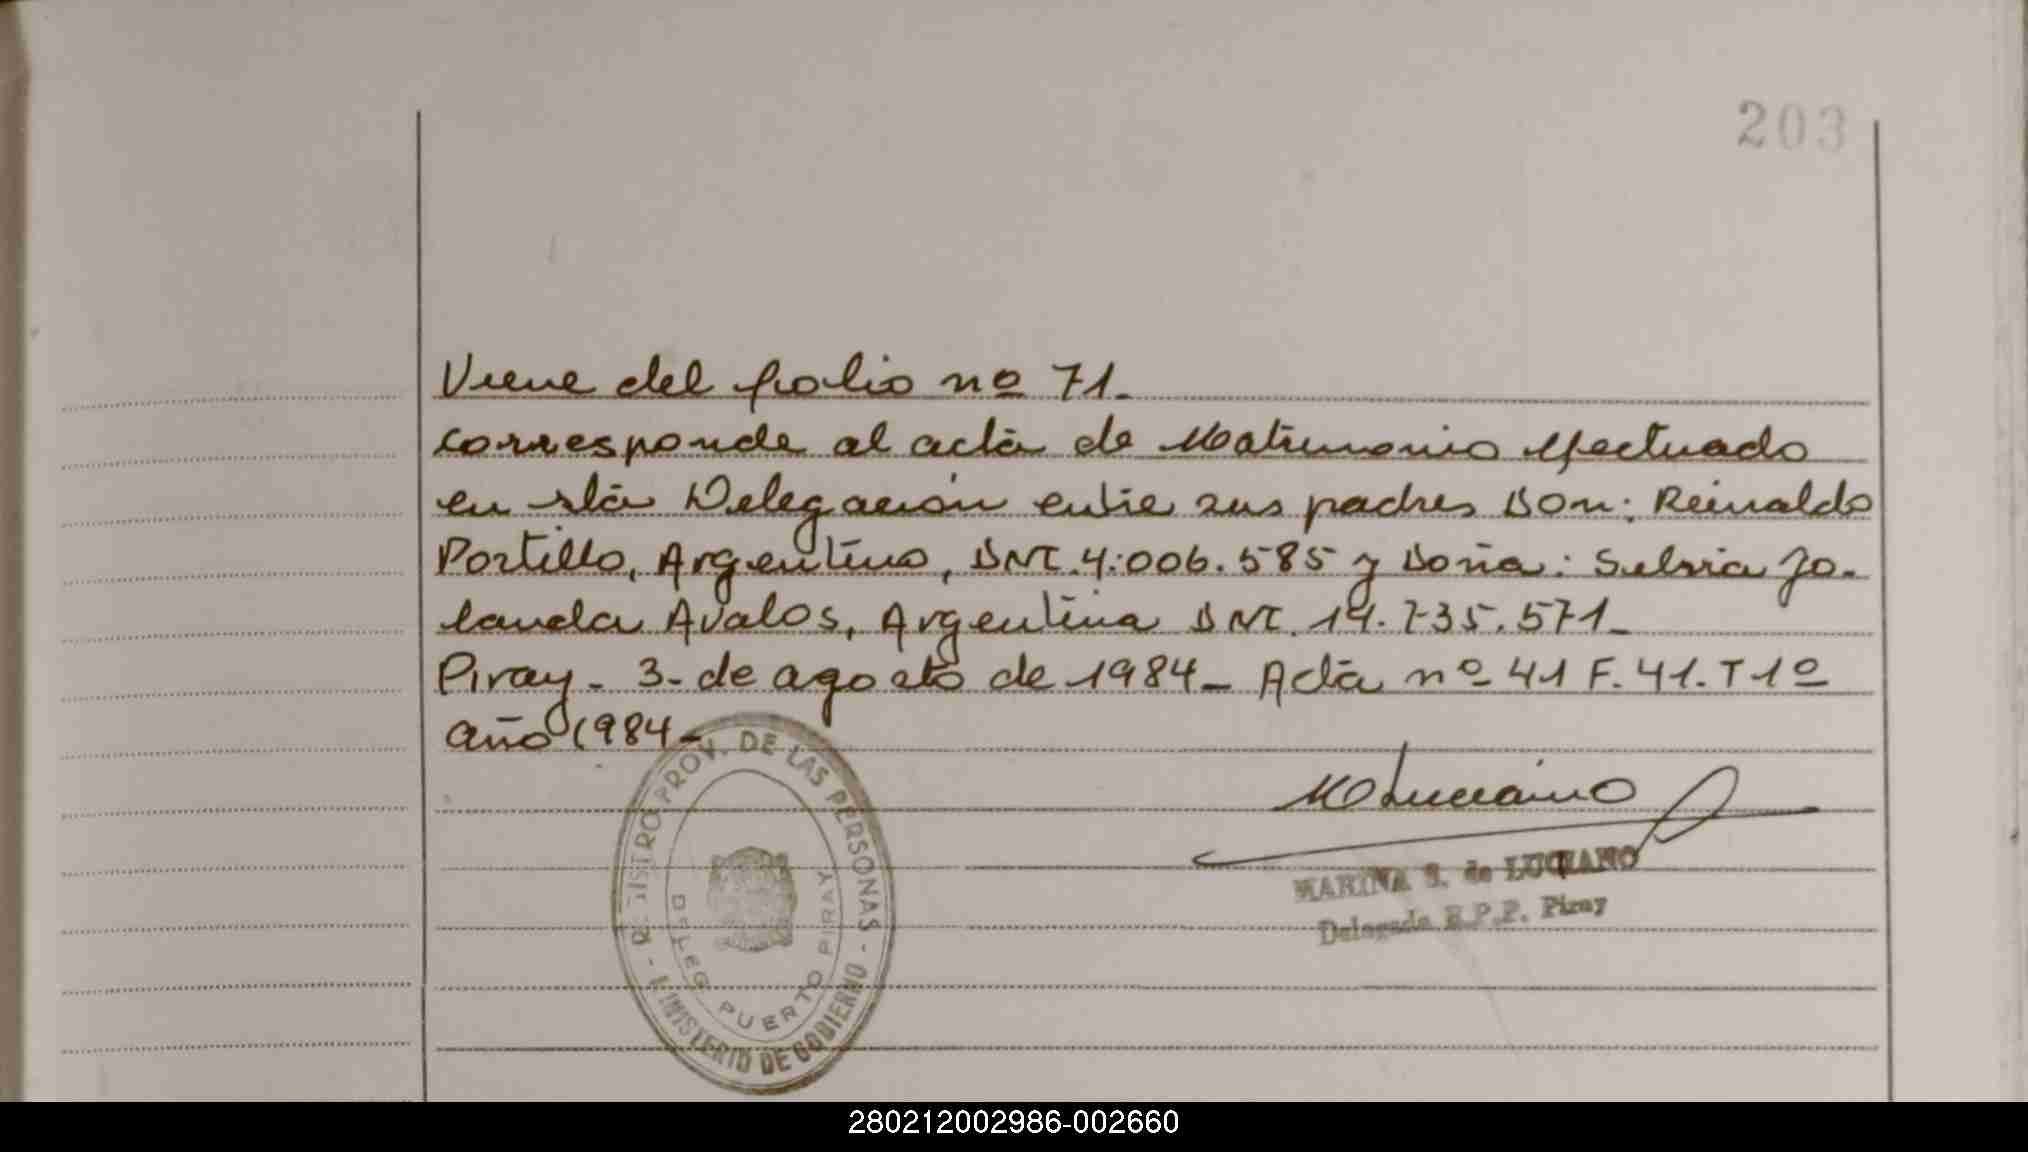 203
Viene del folio nº 71_
corresponde al acta de Matrimonio efectuado
en esta Delegación entre sus padres Don: Reinaldo
Portillo, Argentino, DNI. 4:006.585 y Doña: Silvia Jo-
landa Avalos, Argentina DNI. 14.735.571_
Piray - 3 - de agosto de 1984 - Acta nº 41 F. 41. T 1º
año 1984 -
REGISTRO PROV. DE LAS PERSONAS - MINISTERIO DE GOBIERNO -
DELEG. PUERTO PIRAY
Luciano
MARINA S. de LUCIANO
Delegada R.P.P. Piray
280212002986-002660